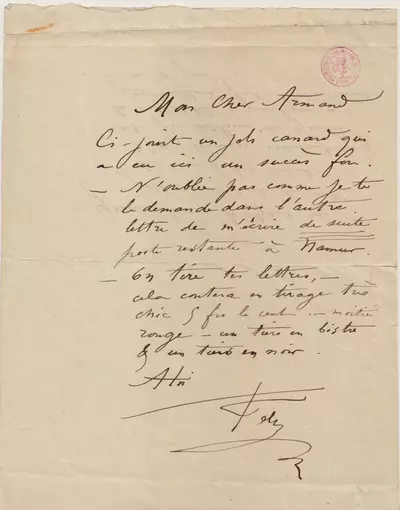 Mon cher Armand
Ci-joint un joli canard qui
a eu ici un succès fou.
— N'oublie pas comme je te
le demande dans l'autre
lettre de m'écrire de suite
poste restante à Namur.
— On tire tes lettres, —
cela coutera en tirage très
chic 5 frs le cent — moitié
rouge — un tiers en bistre
& un tiers en noir.
A toi